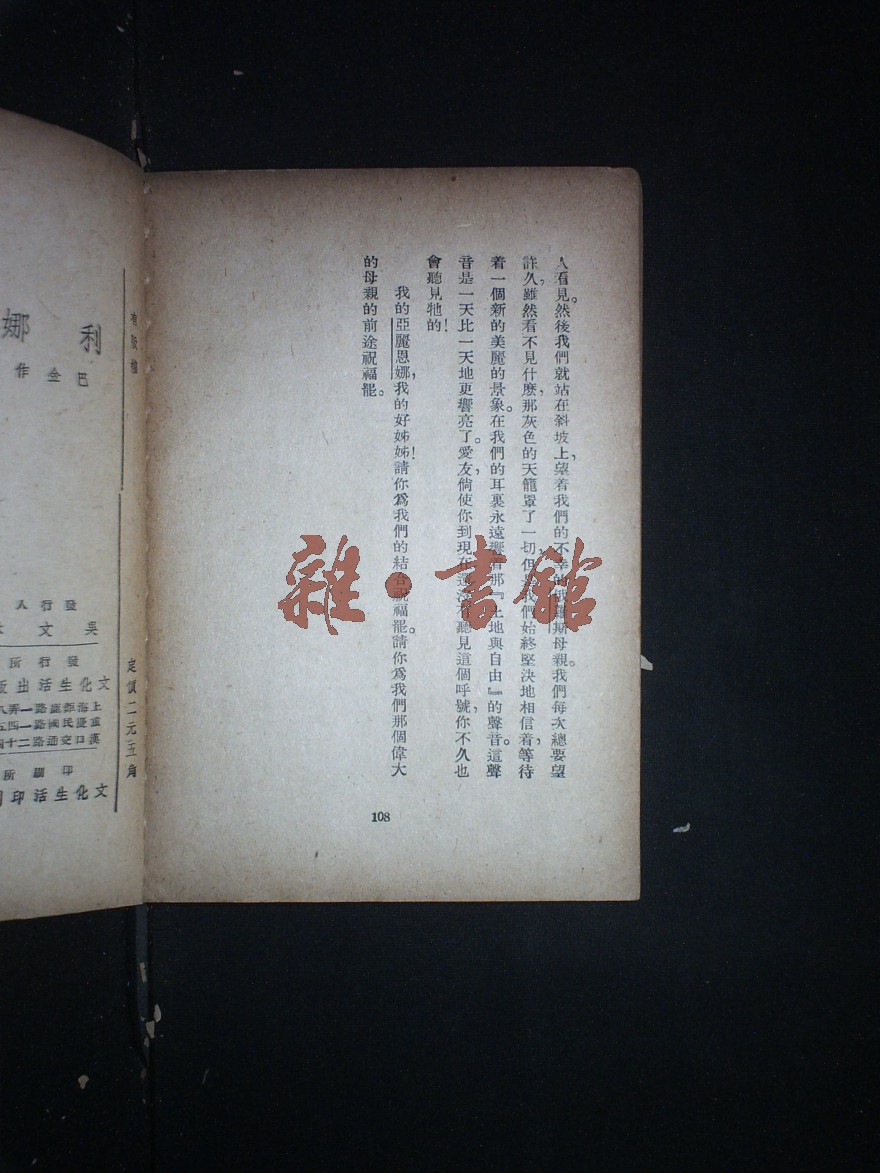 人看見。然後我們就站在斜坡上,望着我們的不幸的俄羅斯母親。我們每次總要望
許久,雖然看不見什麽,那灰色的天籠罩了一切,但是我們始終堅決地相信着,等待
着一個新的美麗的景象。在我們的耳裏永遠響着那『土地與自由』的聲音。這聲
音是一天比一天地更響亮了。愛友,倘使你到現在還沒有聽見這個呼號,你不久也
會聽見牠的!
我的亞麗恩娜,我的好姊姊!請你爲我們的結合祝福罷。請你爲我們那個偉大
的母親的前途祝福罷。
108
雜·書館
有版權
定價二元五角
利娜
巴金作
發行人
吳文
發行所
文化生活出版
上海鉅鹿路一弄八
重慶民國路一四五
漢口交通路二十四
印刷所
文化生活印